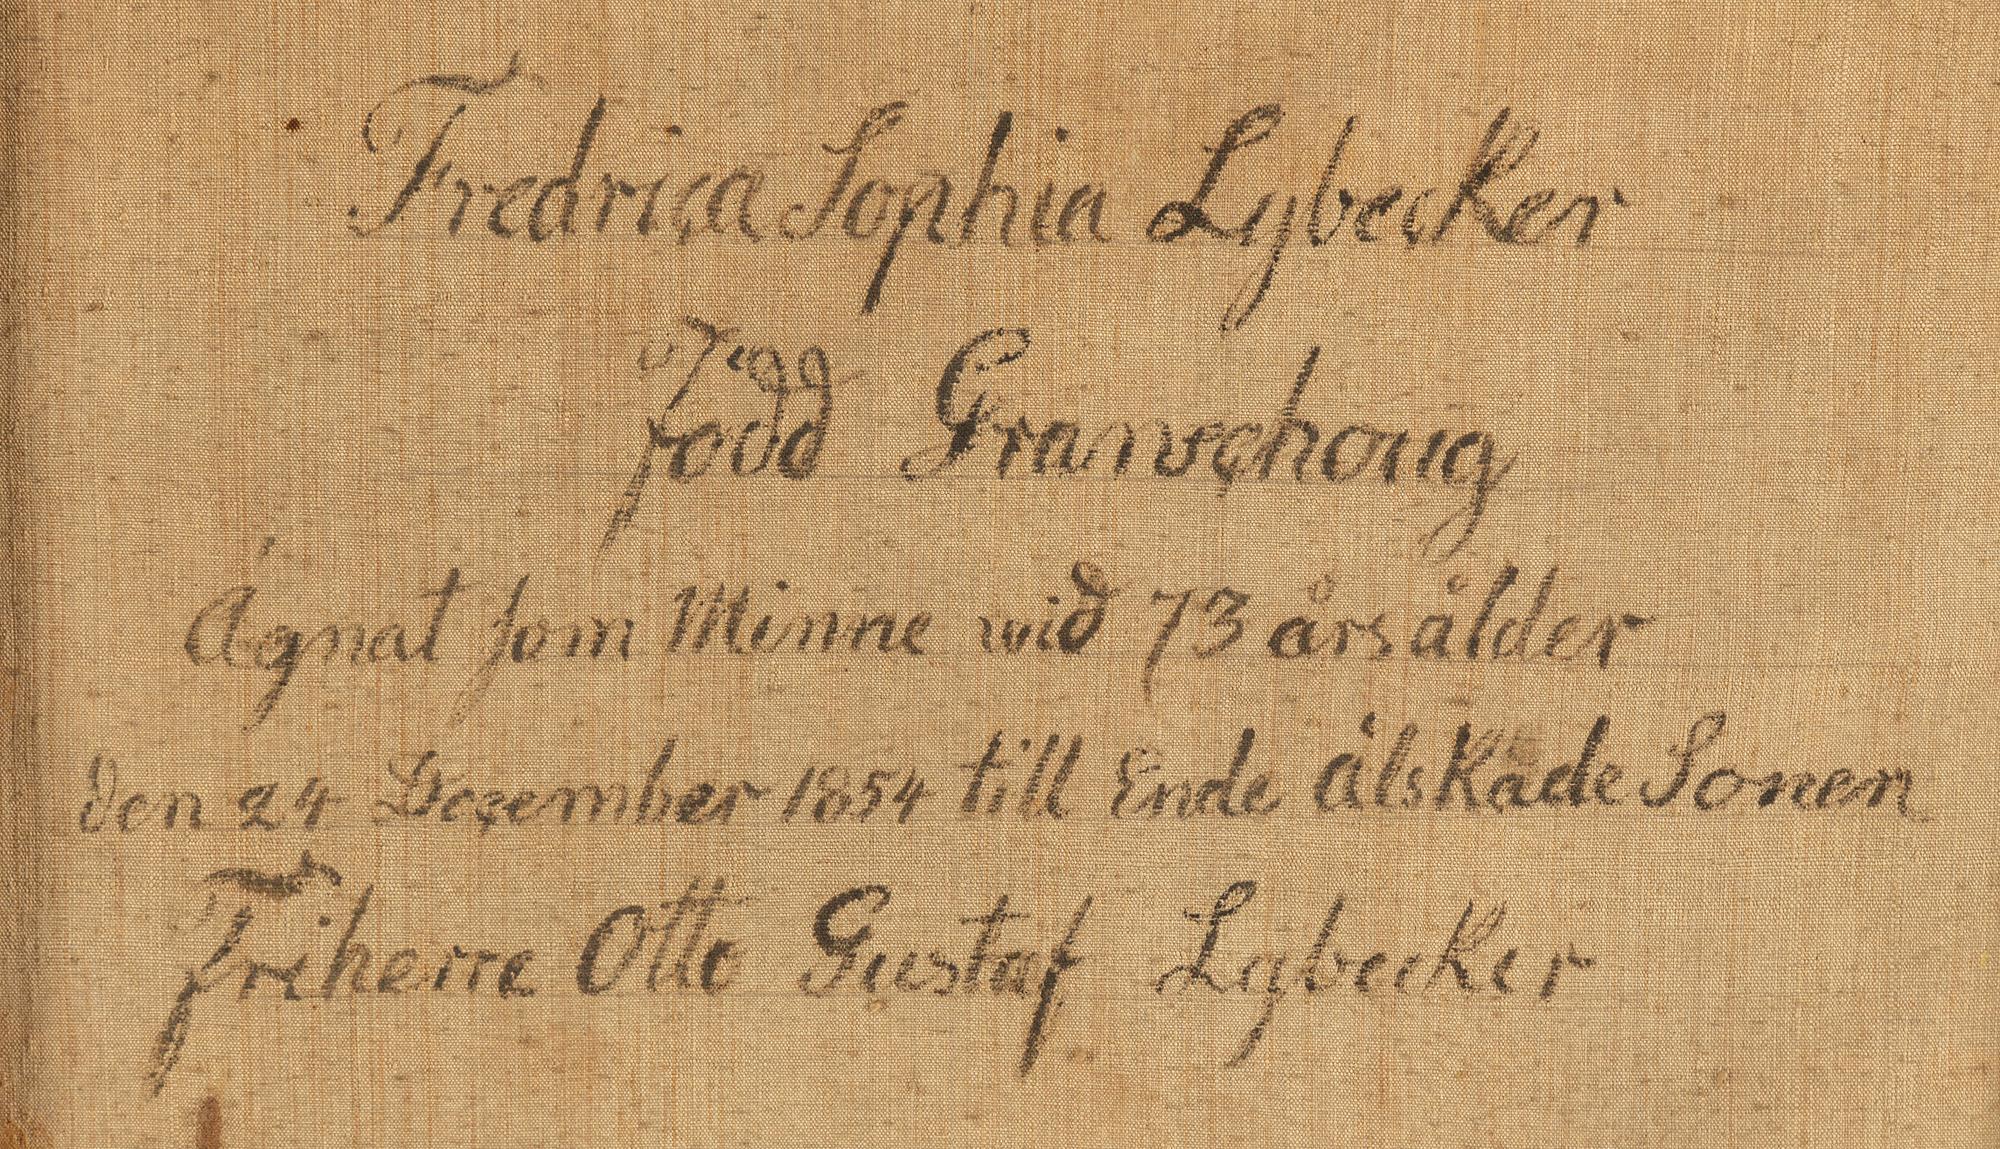 Fredrica Sophia Lybecker
född Granschoug
Ägnat som Minne wid 73 årsålder
den 24 December 1854 till Ende älskade Sonen
Friherre Otto Gustaf Lybecker